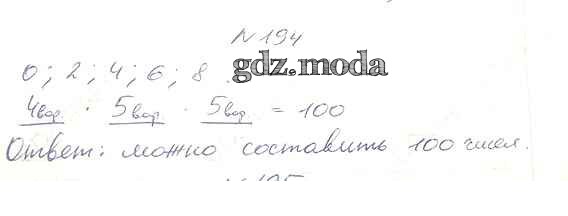 N 194
0; 2; 4; 6; 8 gdz.moda
4вар. · 5вар. · 5вар. = 100
Ответ: можно составить 100 чисел.